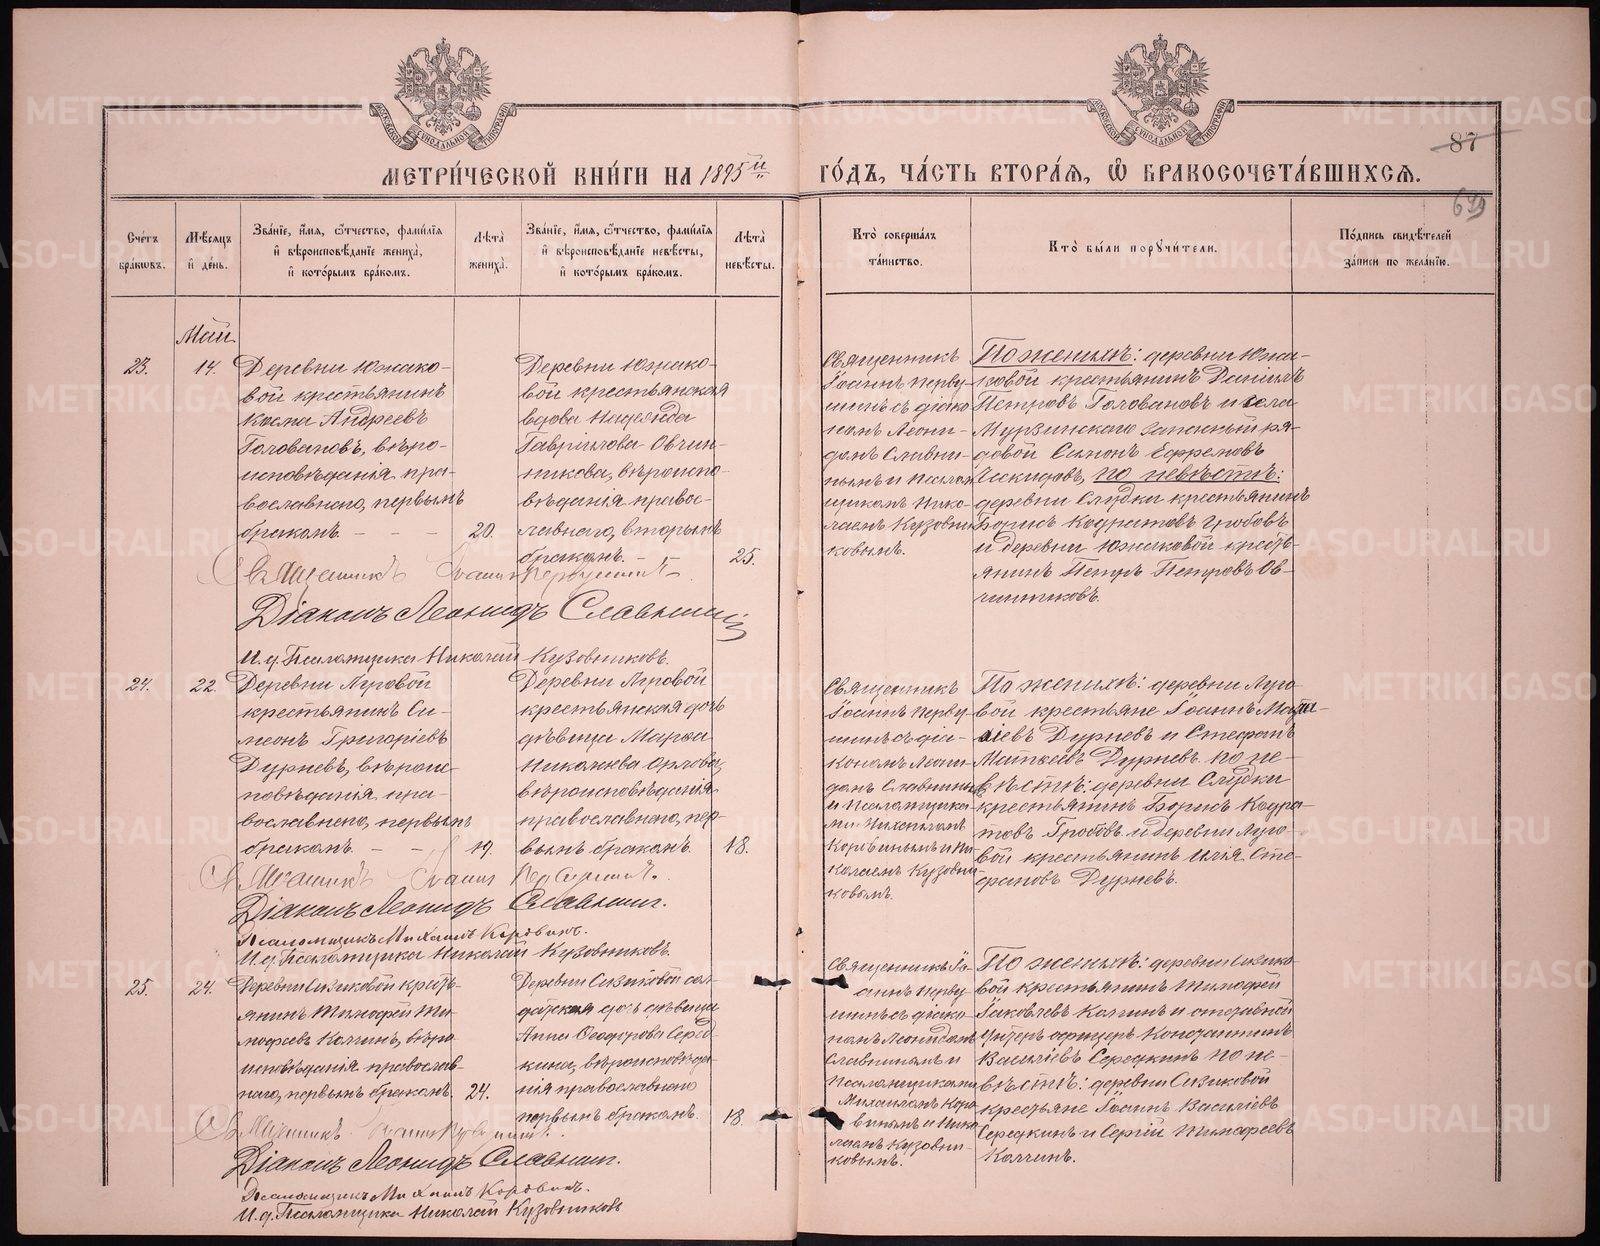 МЕТРИ́ЧЕСКОЙ КНИ́ГИ НА 1895й
ГО́ДЪ, ЧА́СТЬ ВТОРА́Я, Ѽ БРАКОСОЧЕТА́ВШИХСЯ.
87
699
Сче́тъ бра́ковъ.
Мѣ́сяцъ и҆ де́нь.
Зва́нїе, и҆́мя, ѻ҆́тчество, фами́лїя и҆ вѣроисповѣ́данїе жениха̀, и҆ кото́рымъ бра́комъ.
Лѣта̀ жениха̀.
Зва́нїе, и҆́мя, ѻ҆́тчество, фами́лїя и҆ вѣроисповѣ́данїе невѣ́сты, и҆ кото́рымъ бра́комъ.
Лѣта̀ невѣ́сты.
Кто̀ соверша́лъ та́инство.
Кто̀ бы́ли порꙋчи́тели.
По́дпись свидѣ́телей за́писи по жела́нїю.
Май
23.
14.
Деревни Южако-
вой крестьянинъ
Косма Андреевъ
Головановъ, вѣро-
исповѣданія пра-
вославнаго, первымъ
бракомъ. – – –
20.
Деревни Южако-
вой крестьянская
вдова Надежда
Гаврилова Овчин-
никова, вѣроиспо-
вѣданія правос-
лавнаго, вторымъ
бракомъ. – –
25.
Священникъ
Іоаннъ Перву-
шинъ съ діако-
номъ Леони-
домъ Славни-
нымъ и псалом-
щикомъ Нико-
лаемъ Кузовни-
ковымъ.
По женихѣ: деревни Южа-
ковой крестьянинъ Даніилъ
Петровъ Головановъ и села
Мурзинскаго запасный ря-
довой Симонъ Ефремовъ
по невѣстѣ:
деревни Слудки крестьянинъ
Борисъ Кодратовъ Гробовъ
и деревни Южаковой кресть-
янинъ Петръ Петровъ Ов-
чинниковъ.
Священникъ Іоаннъ Первушинъ
Діаконъ Леонидъ Славнинъ
И. д. Псаломщика Николай Кузовниковъ.
24.
22.
Деревни Луговой
крестьянинъ Си-
меонъ Григоріевъ
Дурневъ, вѣроис-
повѣданія пра-
вославнаго, первымъ
бракомъ. – –
19.
Деревни Луговой
крестьянская дочь
дѣвица Марѳа
Николаева Орлова,
вѣроисповѣданія
православнаго, пер-
вымъ бракомъ.
18.
Священникъ
Іоаннъ Перву-
шинъ съ діа-
кономъ Леони-
домъ Славнинымъ
и Псаломщика-
ми Михаиломъ
Коровинымъ и Ни-
колаемъ Кузовни-
ковымъ.
По женихѣ: деревни Луго-
вой крестьяне Іоаннъ
Дурневъ и Стефанъ
Матѳеевъ Дурневъ. по не-
вѣстѣ: деревни Слудки
крестьянинъ Борисъ Кодра-
товъ Гробовъ и деревни Луго-
вой крестьянинъ Илія Сте-
фановъ Дурневъ.
Священникъ Іоаннъ Первушинъ.
Діаконъ Леонидъ Славнинъ.
Псаломщикъ Михаилъ Коровинъ.
И. д. Псаломщика Николай Кузовниковъ.
25.
24.
Деревни Сизиковой кресть-
янинъ Тимофей Ти-
мофеевъ Калгинъ, вѣро-
исповѣданія православ-
наго, первымъ бракомъ.
24.
Деревни Сизиковой сол-
датская дочь дѣвица
Анна Ѳеодорова Серед-
кина, вѣроисповѣда-
нія православнаго
первымъ бракомъ.
18.
Священникъ Іо-
аннъ Перву-
шинъ съ діако-
номъ Леонидомъ
Славнинымъ и
Псаломщиками
Михаиломъ Коро-
винымъ и Нико-
лаемъ Кузовни-
ковымъ.
По женихѣ: деревни Сизико-
вой крестьянинъ Тимофей
Іаковлевъ Калгинъ и отставной
Унтеръ офицеръ Константинъ
Василіевъ Середкинъ по не-
вѣстѣ: деревни Сизиковой
крестьяне Іоаннъ Василіевъ
Середкинъ и Сергій Тимофеевъ
Калгинъ.
Священникъ Іоаннъ Первушинъ.
Діаконъ Леонидъ Славнинъ.
Псаломщикъ Михаилъ Коровинъ.
И. д. Псаломщика Николай Кузовниковъ
METRIKI.GASO-URAL.RU